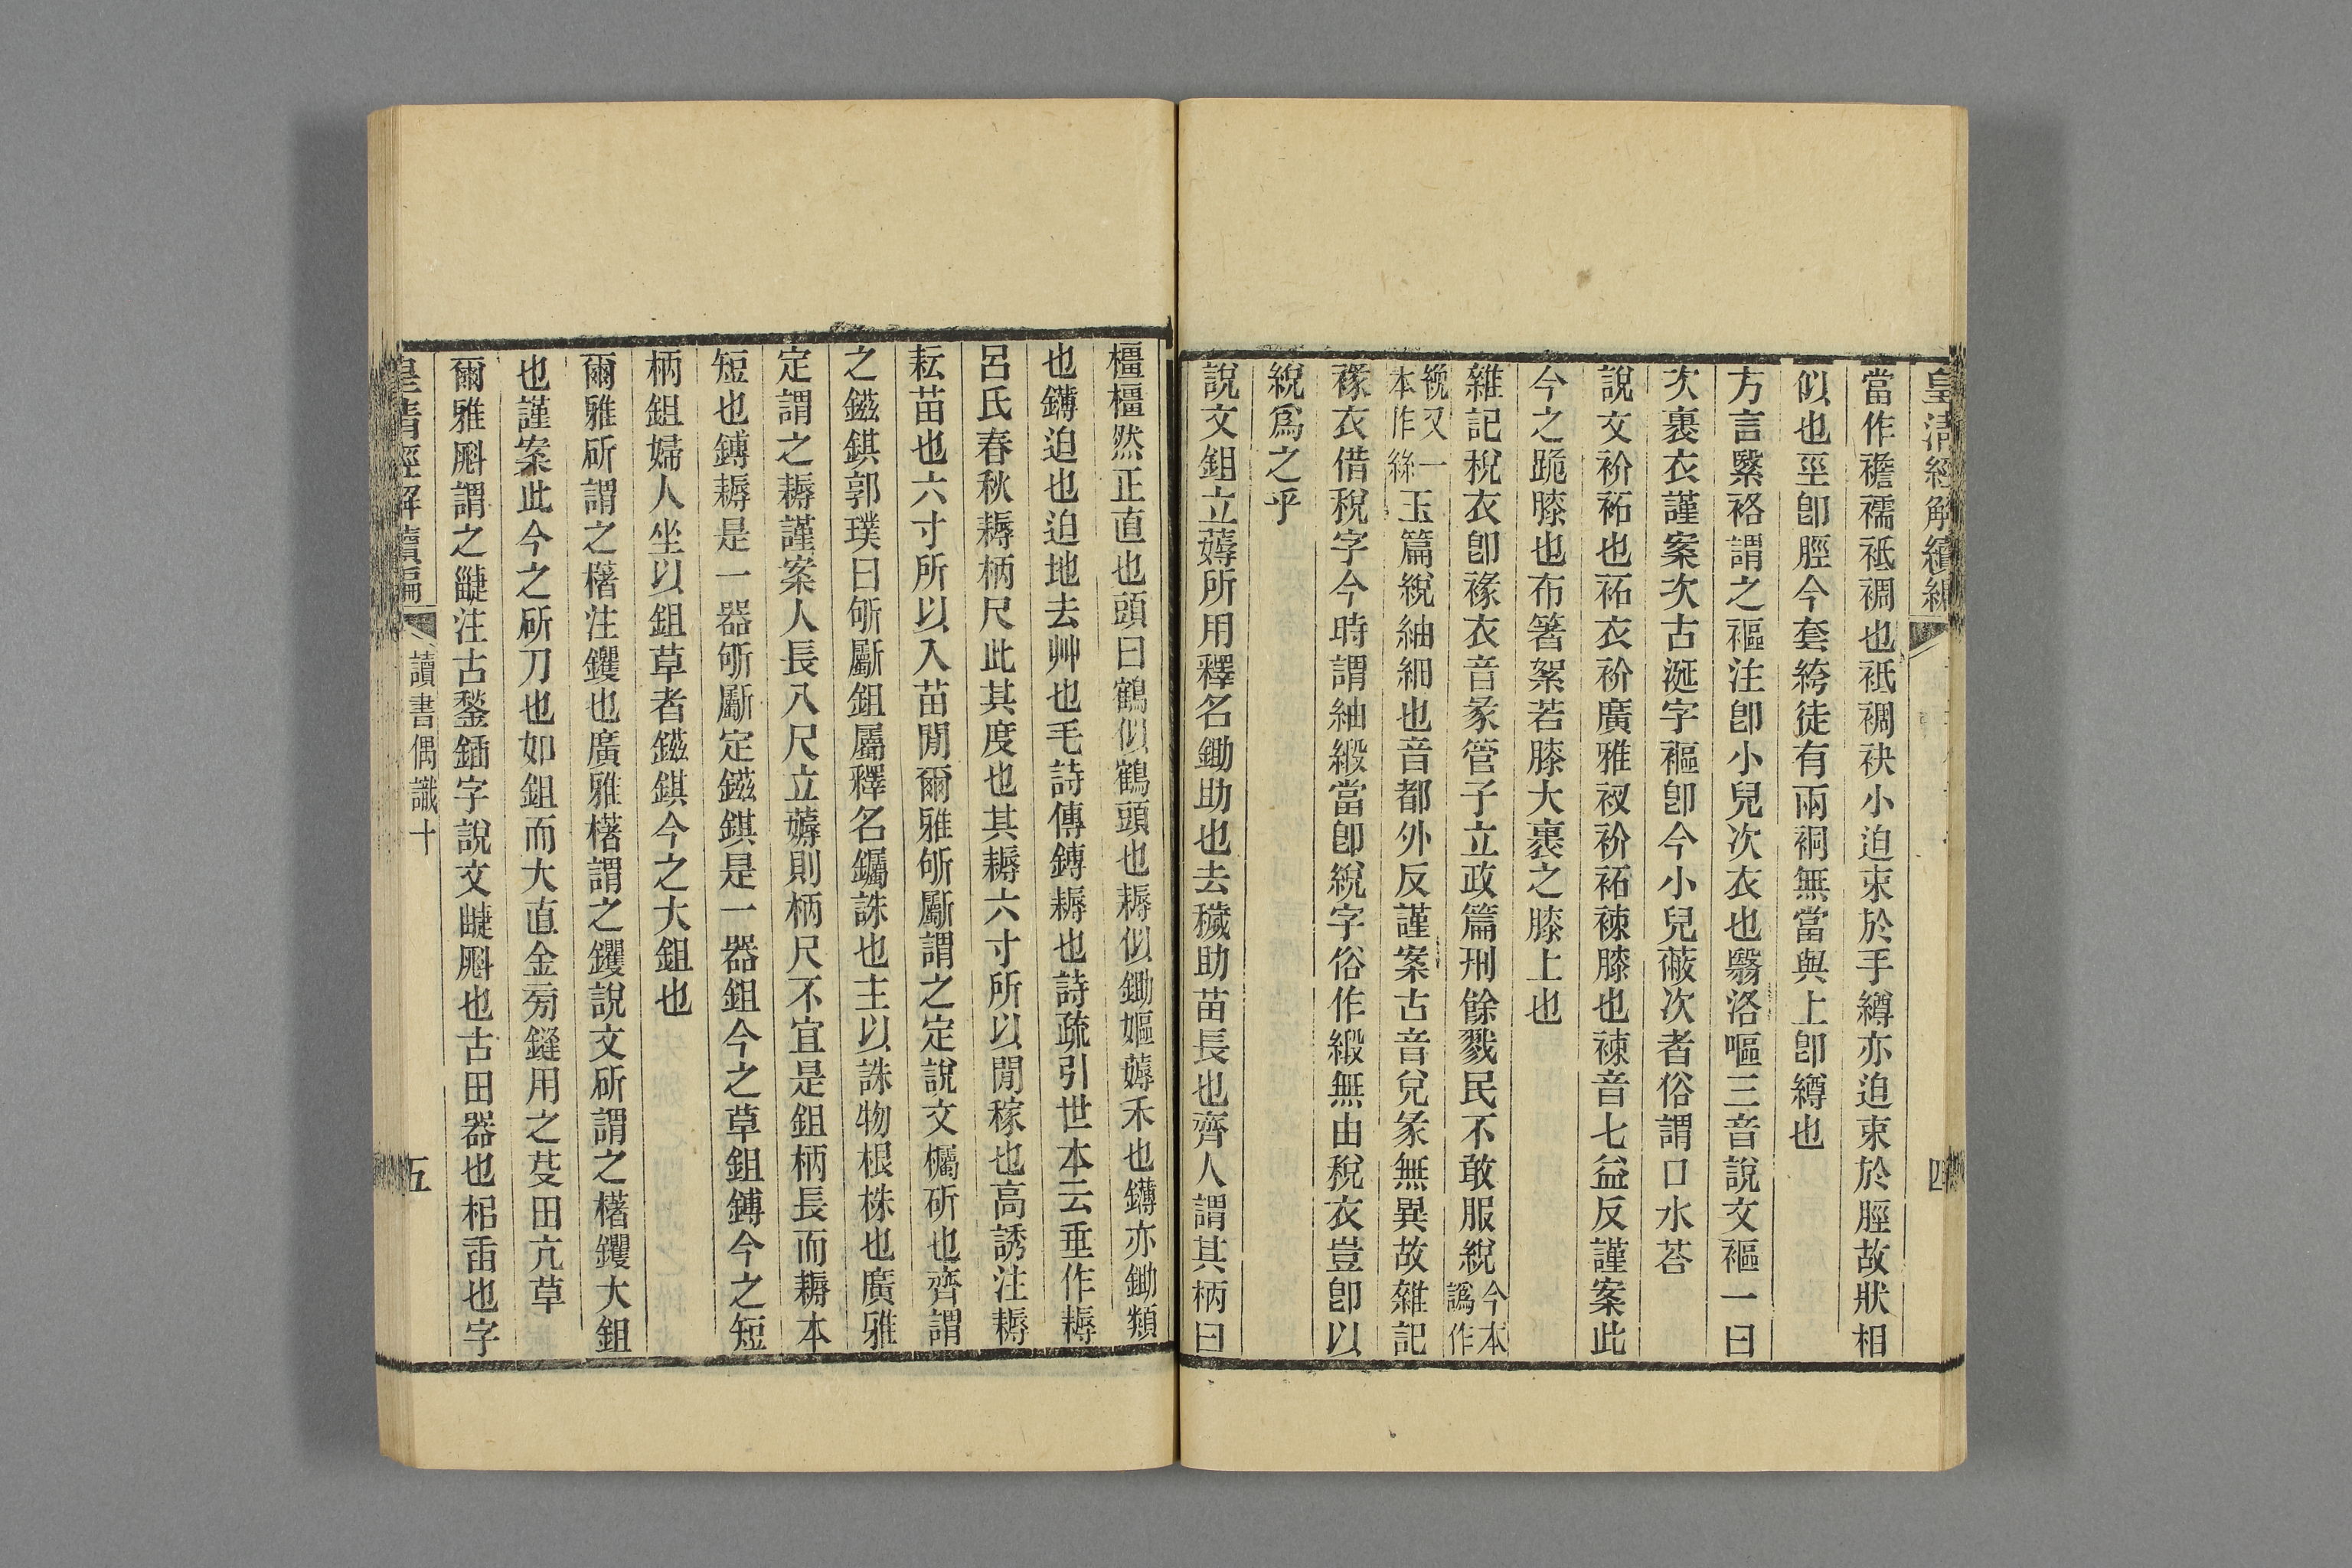 皇清經解續編
四
當作襜襦衹裯也衹裯袂小迫束於手縛亦迫束於脛故狀相
似也巠卽脛今套絝徒有兩裥無當與上卽縛也
方言繄袼謂之褔注卽小兒次衣也翳洛嘔三音說文褔一曰
次裹衣謹案次古涎字褔卽今小兒蔽次者俗謂口水荅
說文衸袥也袥衣衸廣雅衩衸袥𧛢膝也𧛢音七益反謹案此
今之跪膝也布箸絮若膝大裹之膝上也
雜記稅衣卽褖衣音彖管子立政篇刑餘戮民不敢服絻今本譌作
絻又一本作絲玉篇綐紬細也音都外反謹案古音兌彖無異故雜記
褖衣借稅字今時謂紬緞當卽綐字俗作緞無由稅衣豈卽以
綐爲之乎
說文鉏立薅所用釋名鋤助也去穢助苗長也齊人謂其柄曰
橿橿然正直也頭曰鶴似鶴頭也耨似鋤嫗薅禾也鎛亦鋤類
也鎛迫也迫地去艸也毛詩傳鎛耨也詩疏引世本云垂作耨
呂氏春秋耨柄尺此其度也其耨六寸所以閒稼也高誘注耨
耘苗也六寸所以入苗閒爾雅斪斸謂之定說文欘斫也齊謂
之鎡錤郭璞曰斪斸鉏屬釋名钃誅也主以誅物根株也廣雅
定謂之耨謹案人長八尺立薅則柄尺不宜是鉏柄長而耨本
短也鎛耨是一器斪斸定鎡錤是一器鉏今之草鉏鎛今之短
柄鉏婦人坐以鉏草者鎡錤今之大鉏也
爾雅斫謂之櫡注钁也廣雅櫡謂之钁說文斫謂之櫡钁大鉏
也謹案此今之斫刀也如鉏而大直金旁鏠用之芟田亢草
爾雅𣂁謂之疀注古鍫鍤字說文疀𣂁也古田器也梠臿也字
皇清經解續編
讀書偶識十
五